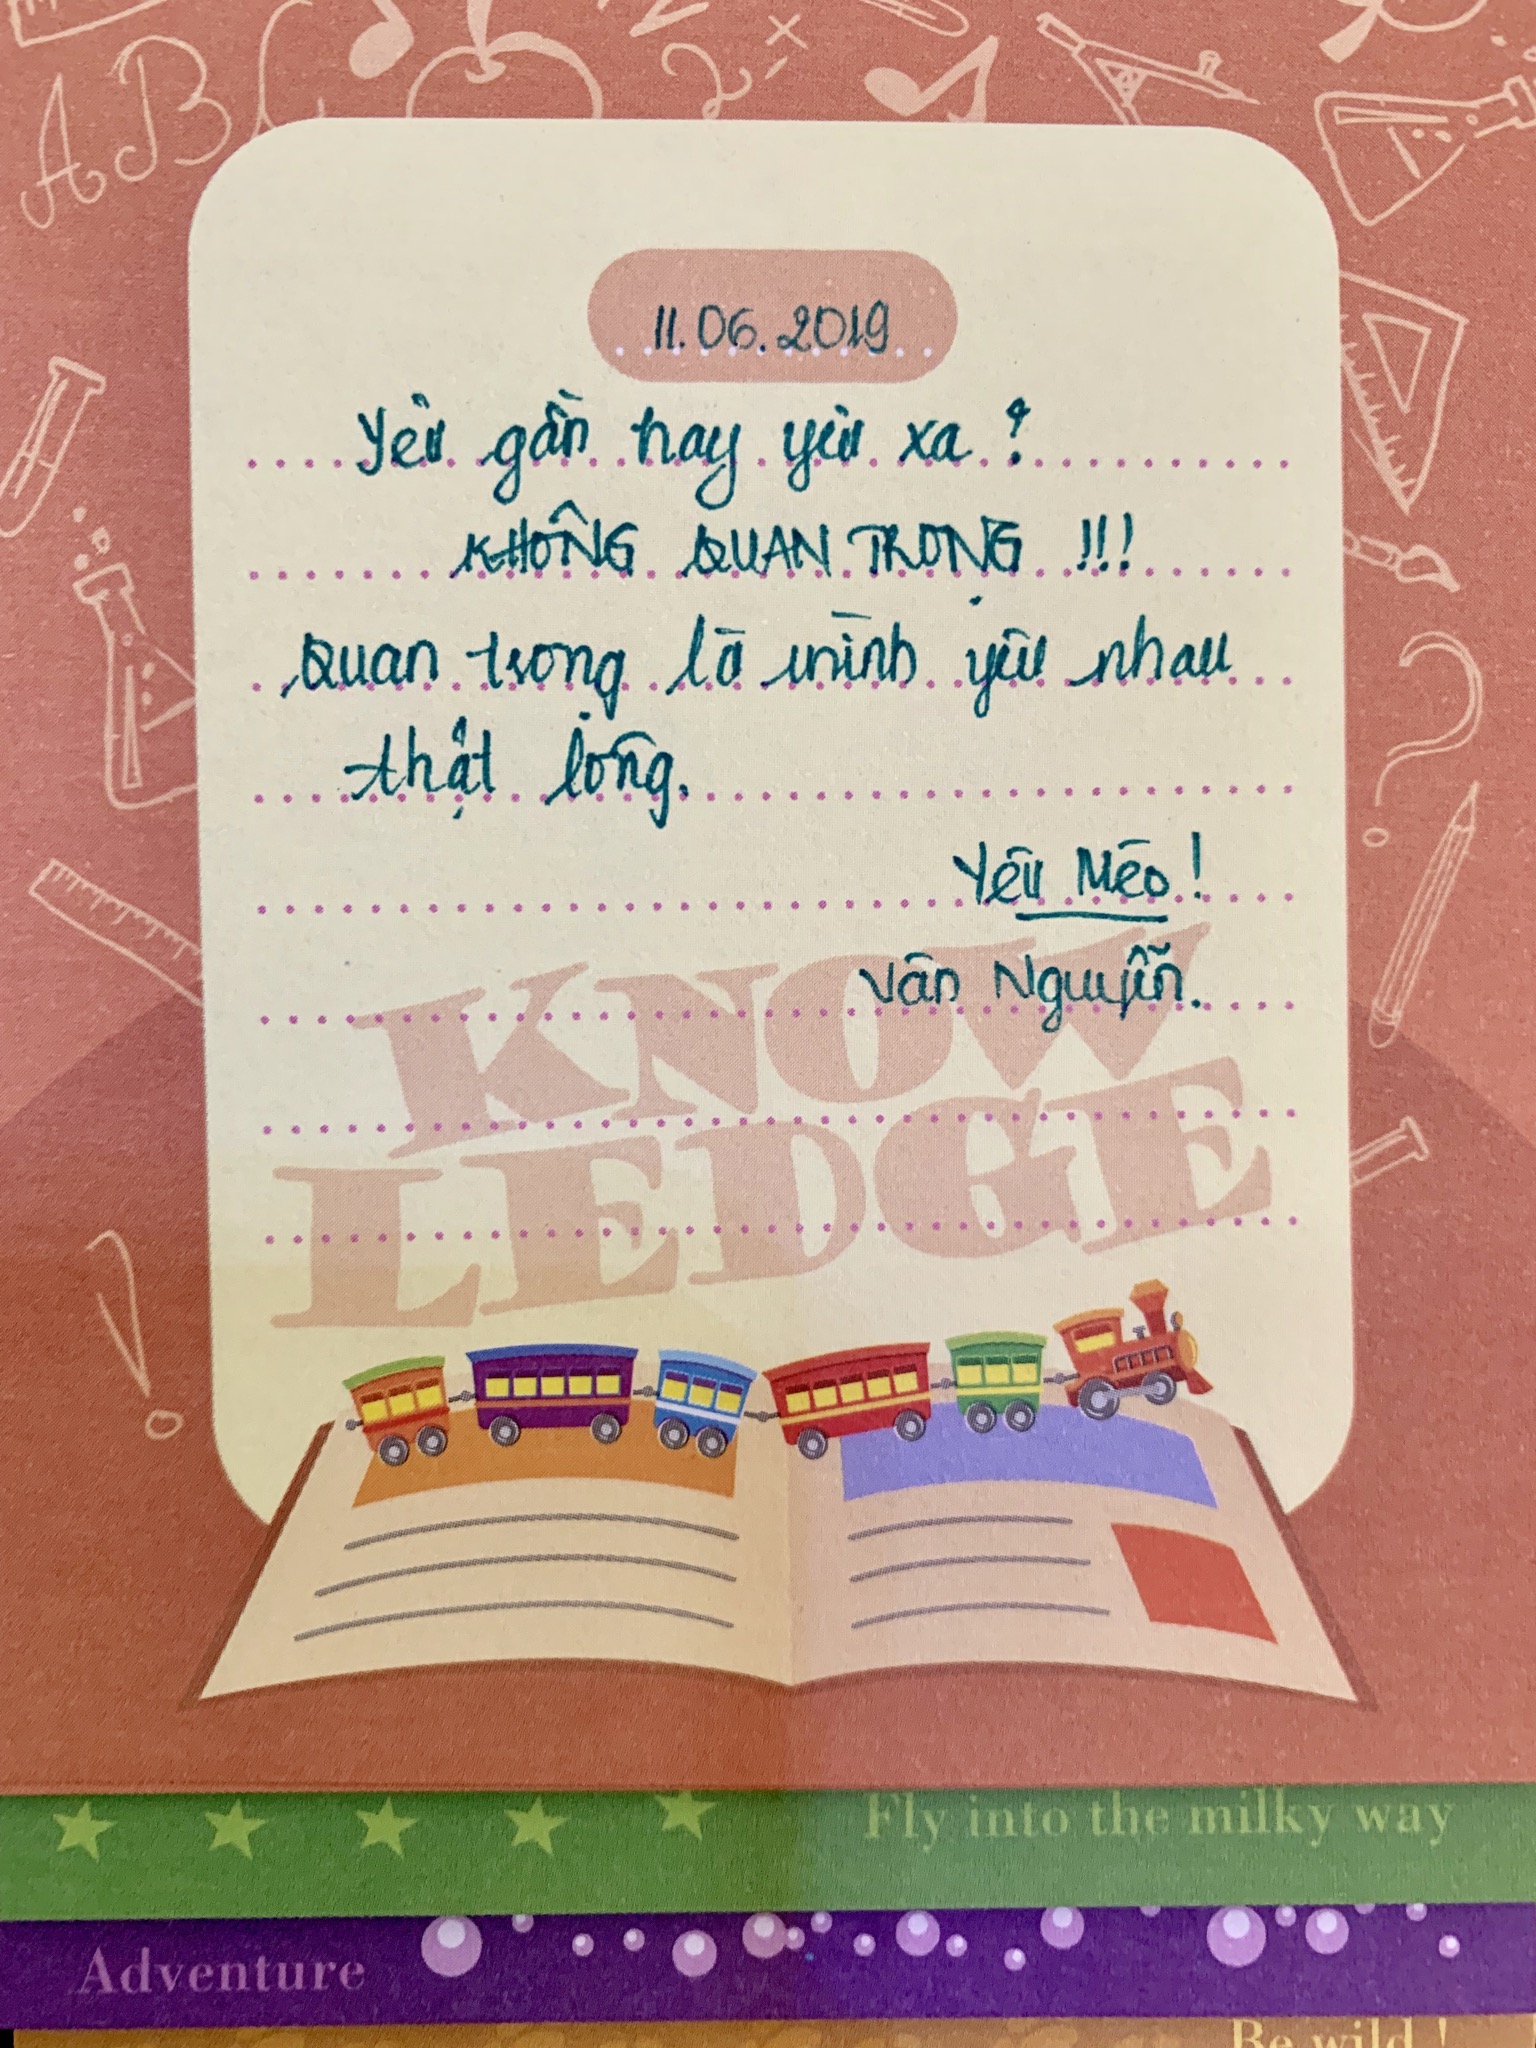 A B C
2
11.06.2019
Yêu gần hay yêu xa?
KHÔNG QUAN TRỌNG !!!
Quan trọng là mình yêu nhau
thật lòng.
Yêu Mèo!
Vân Nguyễn.
KNOW
LEDGE
Fly into the milky way
Adventure
Be wild!